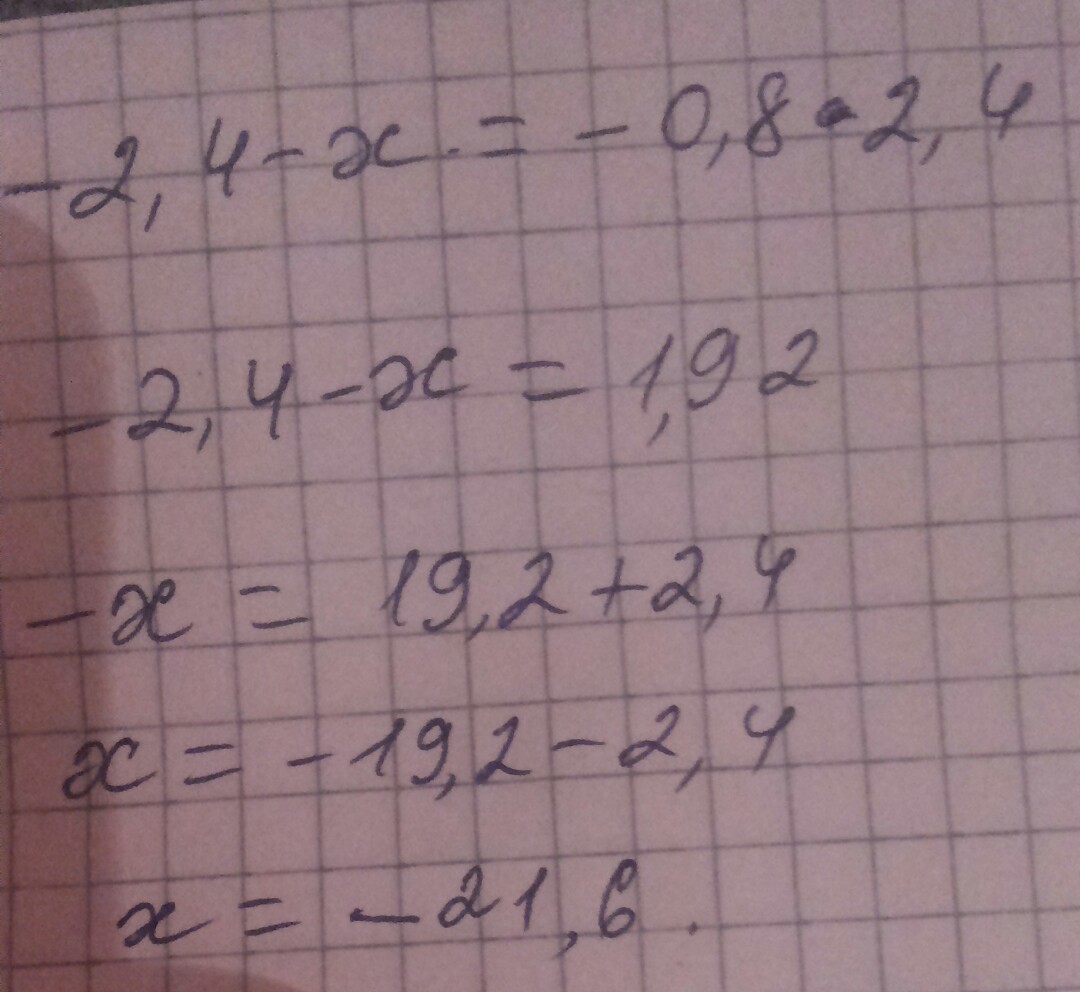 -2,4-x=-0,8•2,4
-2,4-x=1,92
-x=19,2+2,4
x=-19,2-2,4
x=-21,6.